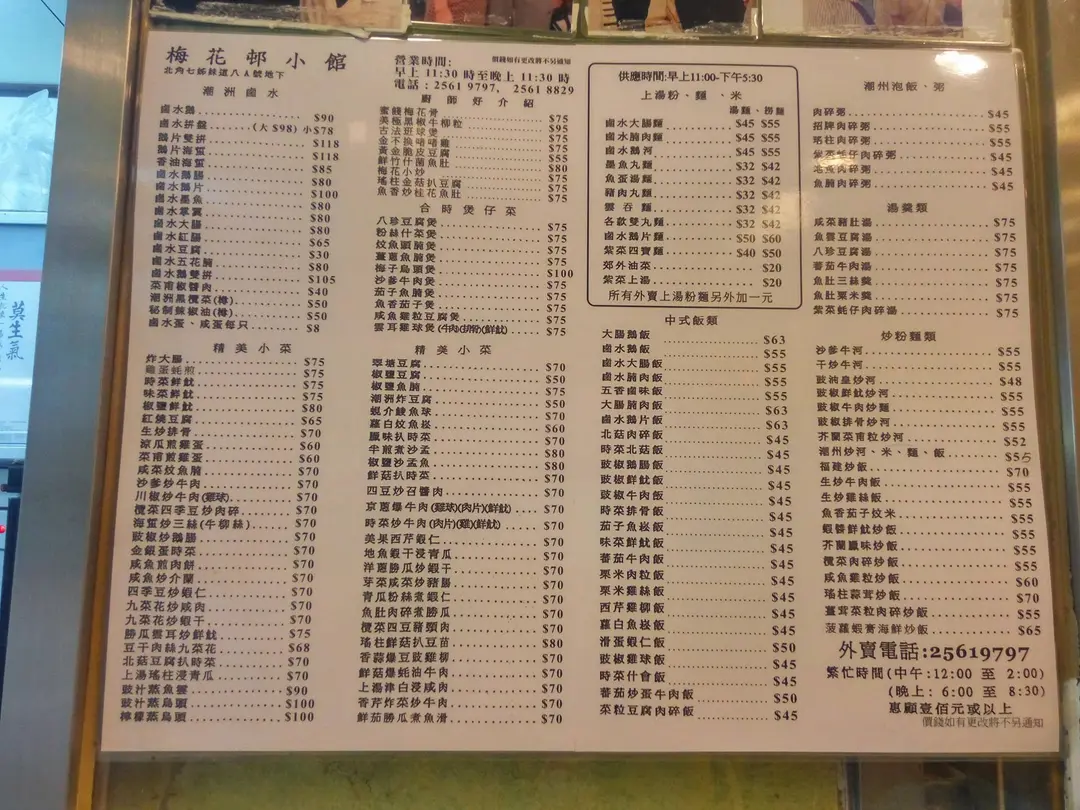 梅花邨小館
北角七姊妹道八A號地下
營業時間:
價錢如有更改將不另通知
早上 11:30 時至晚上 11:30 時
電話:2561 9797, 2561 8829
潮洲鹵水
鹵水鵝 $90
鹵水拼盤 (大 $98) 小 $78
鵝片雙拼 $118
鵝片海蜇 $118
香油海蜇 $85
鹵水鵝腸 $80
鹵水鵝片 $100
鹵水墨魚 $80
鹵水掌翼 $80
鹵水大腸 $80
鹵水紅腸 $65
鹵水豆腐 $30
鹵水五花腩 $80
鹵水鵝雙拼 $105
菜甫椒醬肉 $40
潮洲黑欖菜(樽) $50
秘制辣椒油(樽) $50
鹵水蛋、咸蛋每只 $8
精美小菜
炸大腸 $75
雞蛋蚝煎 $75
時菜鮮魷 $75
味菜鮮魷 $75
椒鹽鮮魷 $80
紅燒豆腐 $65
生炒排骨 $70
涼瓜煎雞蛋 $60
菜甫煎雞蛋 $60
咸菜炆魚腩 $70
沙爹炒牛肉 $70
川椒炒牛肉(雞球) $70
欖菜四季豆炒肉碎 $70
海蜇炒三絲(牛柳絲) $70
豉椒炒鵝腸 $70
金銀蛋時菜 $70
咸魚煎肉餅 $70
咸魚炒介蘭 $70
四季豆炒蝦仁 $70
九菜花炒咸肉 $70
九菜花炒蝦干 $70
勝瓜雲耳炒鮮魷 $75
豆干肉絲九菜花 $68
北菇豆腐扒時菜 $70
上湯瑤柱浸青瓜 $70
豉汁蒸魚雲 $90
豉汁蒸烏頭 $100
檸檬蒸烏頭 $100
廚師好介紹
蜜餞梅花骨 $75
美極黑椒牛柳粒 $95
古法班球煲 $75
金不換啫啫雞 $75
黃金脆皮豆腐 $55
鮮竹什菌魚肚 $80
梅花小炒 $75
瑤柱金菇扒豆腐 $75
魚香炒桂花魚肚 $75
合時煲仔菜
八珍豆腐煲 $75
粉絲什菜煲 $75
炆魚頭腩煲 $75
薑蔥魚腩煲 $75
梅子烏頭煲 $100
沙爹牛肉煲 $75
茄子魚腩煲 $75
魚香茄子煲 $75
咸魚雞粒豆腐煲 $75
雲耳雞球煲(牛肉)(排骨)(鮮魷) $75
精美小菜
翠塘豆腐 $70
椒鹽豆腐 $50
椒鹽魚腩 $75
潮洲炸豆腐 $50
蜆介鯪魚球 $70
蘿白炆魚崧 $60
臘味扒時菜 $70
半煎煮沙孟 $80
椒鹽沙孟魚 $80
鮮菇扒時菜 $70
四豆炒召醬肉 $70
京蔥爆牛肉(雞球)(肉片)(鮮魷) $70
時菜炒牛肉(肉片)(雞)(鮮魷) $70
美果西芹蝦仁 $70
地魚蝦干浸青瓜 $70
洋蔥勝瓜炒蝦干 $70
芽菜咸菜炒豬腸 $70
青瓜粉絲煮蝦仁 $70
魚肚肉碎煮勝瓜 $70
欖菜四豆豬頸肉 $70
瑤柱鮮菇扒豆苗 $80
香蒜爆豆豉雞柳 $70
鮮菇爆蚝油牛肉 $70
上湯津白浸咸肉 $70
香芹炸菜炒牛肉 $70
鮮茄勝瓜煮魚滑 $70
供應時間:早上11:00-下午5:30
上湯粉、麵、米
湯麵、撈麵
鹵水大腸麵 $45 $55
鹵水腩肉麵 $45 $55
鹵水鵝河 $45 $55
墨魚丸麵 $32 $42
魚蛋湯麵 $32 $42
豬肉丸麵 $32 $42
雲吞麵 $32 $42
各款雙丸麵 $32 $42
鹵水鵝片麵 $50 $60
紫菜四寶麵 $40 $50
郊外油菜 $20
紫菜上湯 $20
所有外賣上湯粉麵另外加一元
中式飯類
大腸鵝飯 $63
鹵水鵝飯 $55
鹵水大腸飯 $55
鹵水腩肉飯 $55
五香鹵味飯 $55
大腸腩肉飯 $63
鹵水鵝片飯 $63
北菇肉碎飯 $45
時菜北菇飯 $45
豉椒鵝腸飯 $45
豉椒鮮魷飯 $45
豉椒牛肉飯 $45
時菜排骨飯 $45
茄子魚崧飯 $45
味菜鮮魷飯 $45
蕃茄牛肉飯 $45
栗米肉粒飯 $45
栗米雞絲飯 $45
西芹雞柳飯 $45
蘿白魚崧飯 $45
滑蛋蝦仁飯 $50
豉椒雞球飯 $45
時菜什會飯 $45
蕃茄炒蛋牛肉飯 $50
菜粒豆腐肉碎飯 $45
潮州泡飯、粥
肉碎粥 $45
招牌肉碎粥 $55
瑤柱肉碎粥 $55
紫菜蚝仔肉碎粥 $45
地魚肉碎粥 $45
魚腩肉碎粥 $45
湯羹類
咸菜豬肚湯 $75
魚雲豆腐湯 $75
八珍豆腐湯 $75
蕃茄牛肉湯 $75
魚肚三絲羹 $75
魚肚粟米羹 $75
紫菜蚝仔肉碎湯 $75
炒粉麵類
沙爹牛河 $55
干炒牛河 $55
豉油皇炒河 $48
豉椒鮮魷炒河 $55
豉椒牛肉炒麵 $55
豉椒排骨炒河 $55
芥蘭菜甫粒炒河 $52
潮州炒河、米、麵、飯 $55
福建炒飯 $70
生炒牛肉飯 $55
生炒雞絲飯 $55
魚香茄子炆米 $55
蝦醬鮮魷炒飯 $55
芥蘭臘味炒飯 $55
欖菜肉碎炒飯 $55
咸魚雞粒炒飯 $60
瑤柱蒜茸炒飯 $70
薑茸菜粒肉碎炒飯 $55
菠蘿蝦膏海鮮炒飯 $65
外賣電話:25619797
繁忙時間(中午:12:00 至 2:00)
(晚上: 6:00 至 8:30)
惠顧壹佰元或以上
價錢如有更改將不另通知
莫生氣